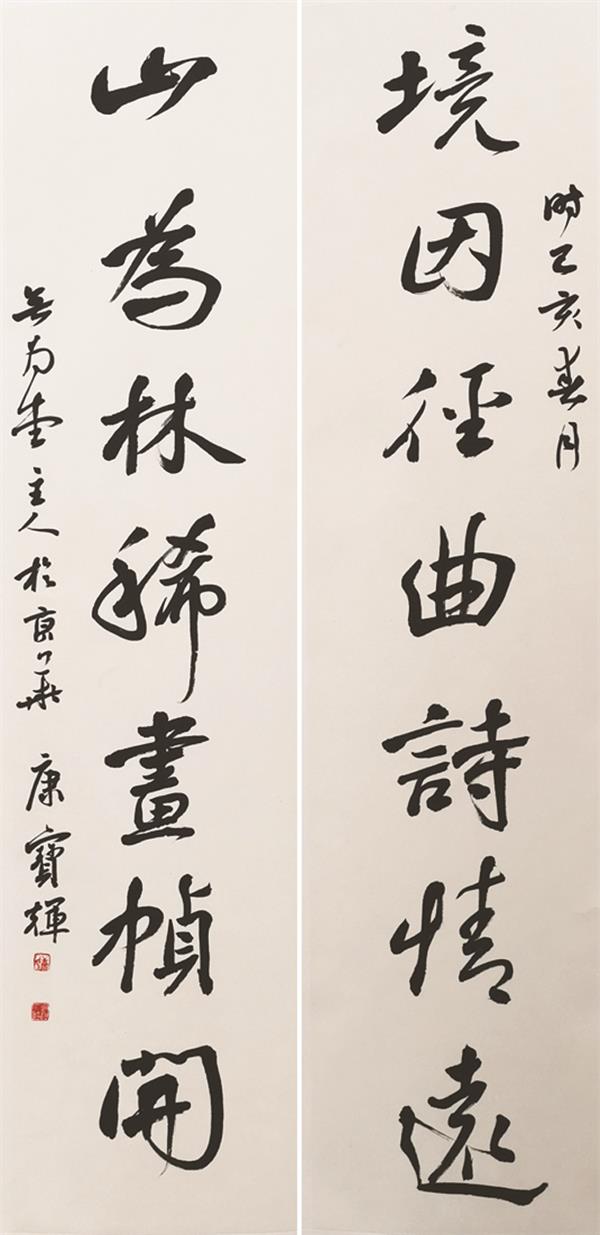 时己亥春月
境因徑曲詩情遠
山為林稀畫幀開
無为堂主人於京華 康寶輝